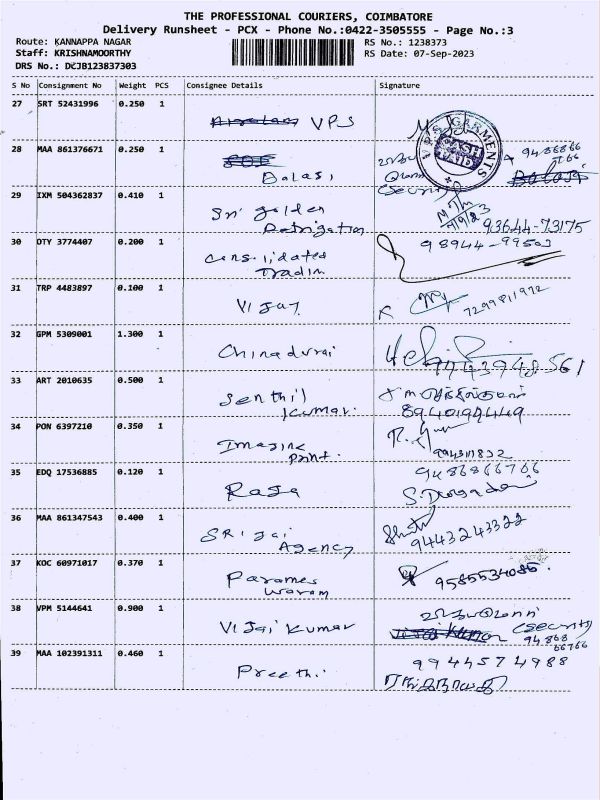 THE PROFESSIONAL COURIERS, COIMBATORE
Delivery Runsheet - PCX - Phone No.:0422-3505555 - Page No.:3
Route: KANNAPPA NAGAR RS No.: 1238373
Staff: KRISHNAMOORTHY RS Date: 07-Sep-2023
DRS No.: DCJB123837303
S No Consignment No Weight PCS Consignee Details Signature
27 SRT 52431996 0.250 1
VPS
VPS GARMENTS
28 MAA 861376671 0.250 1
Balaji
(Security)
29 IXM 504362837 0.410 1
Sri golden
93644-73175
30 DTY 3774407 0.200 1
98944-99503
Consolidated
Tradin
31 TRP 4483897 0.100 1
Vijay
7299811972
32 GPM 5309001 1.300 1
Chinadurai
9443948561
33 ART 2010635 0.500 1
Senthil
kumar.
34 PON 6397210 0.350 1
Imagine
print.
994311832
35 EDQ 17536885 0.120 1
9486866766
Raja
36 MAA 861347543 0.400 1
SRI Jai
Agency
9443243322
37 KOC 60971017 0.370 1
Parames
waram
9585534085.
38 VPM 5144641 0.900 1
Vijai Kumar
(Security)
94868
66766
39 MAA 102391311 0.460 1
9944574988
Preethi